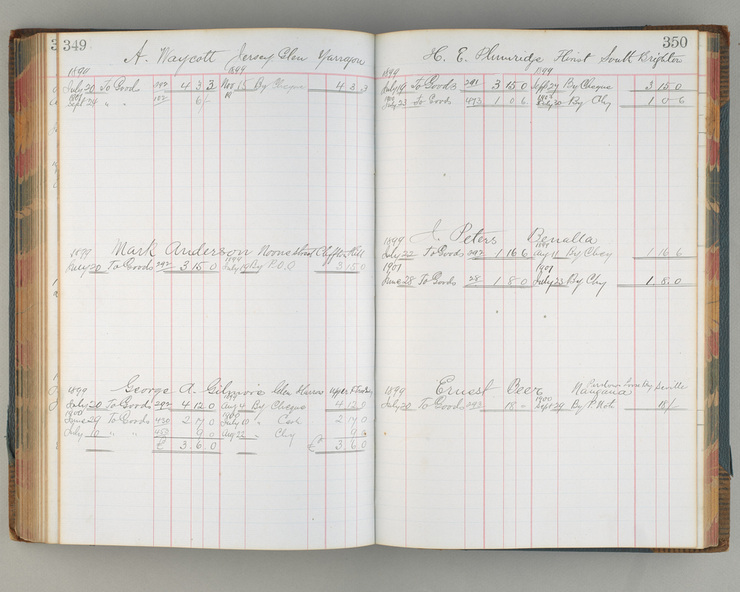 349
A. Waycott Jersey Glen Yarragon
1899 1899
July 20 To Goods 292 4 3 3 Nov 15 By Cheque 4 3 3
Sept 24 " " 187 6/-
1899 Mark Anderson Noone Street Clifton Hill
1899
July 20 To Goods 292 3 15 0 July 19 By P.O.O 3 15 0
1899 George A. Gilmore Glen Harrow
1899
July 20 To Goods 292 4 12 0 Aug 4 By Cheque 4 12 0
1900 1900
June 29 To Goods 420 2 17 0 July 10 " Cash 2 17 0
July 10 " " 450 9 0 Aug 22 " Chq 9 0
£ 3 6 0 £ 3 6 0
350
H. E. Plumridge Florist South Brighton
1899 1899
July 19 To Goods 291 3 15 0 Sept 27 By Cheque 3 15 0
July 23 To Goods 493 1 0 6 July 30 By Chq 1 0 6
1899 J. Peters Benalla
1899
July 22 To Goods 292 1 16 6 Aug 11 By Cheq 1 16 6
1901 1901
June 28 To Goods 28 1 8 0 July 23 By Chq 1 8 0
1899 Ernest Peer Nangana
1900
July 20 To Goods 293 18 - Sept 29 By P. Note 18/-